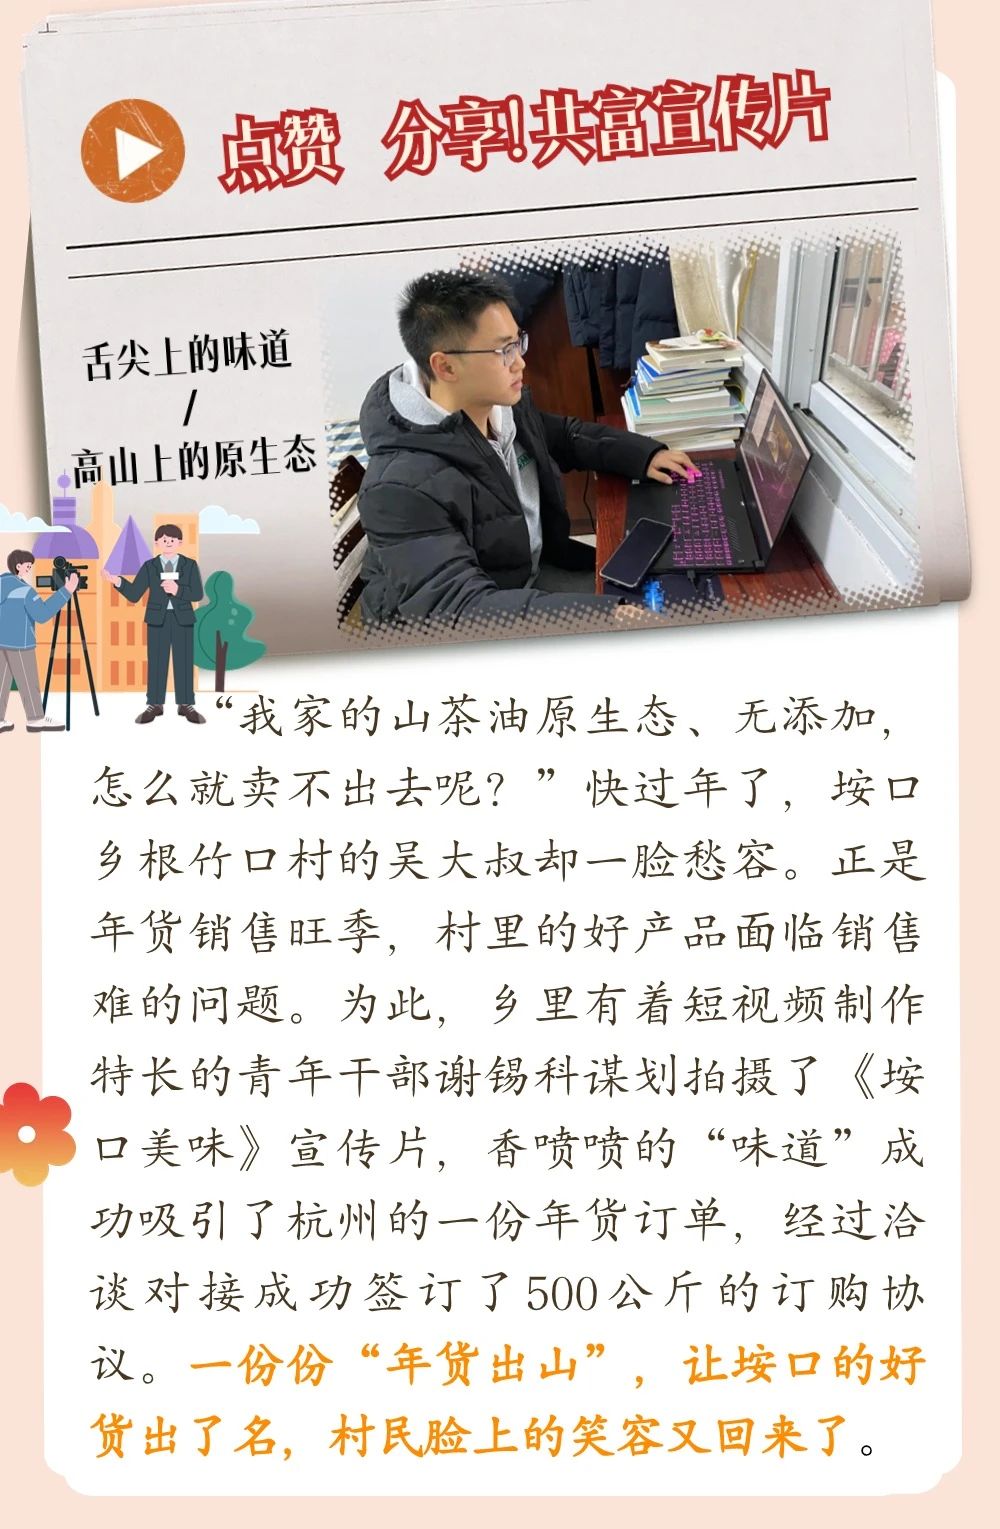 点赞 分享!共富宣传片
舌尖上的味道
/
高山上的原生态
“我家的山茶油原生态、无添加，
怎么就卖不出去呢？”快过年了，垵口
乡根竹口村的吴大叔却一脸愁容。正是
年货销售旺季，村里的好产品面临销售
难的问题。为此，乡里有着短视频制作
特长的青年干部谢锡科谋划拍摄了《垵
口美味》宣传片，香喷喷的“味道”成
功吸引了杭州的一份年货订单，经过洽
谈对接成功签订了500公斤的订购协
议。一份份“年货出山”，让垵口的好
货出了名，村民脸上的笑容又回来了。